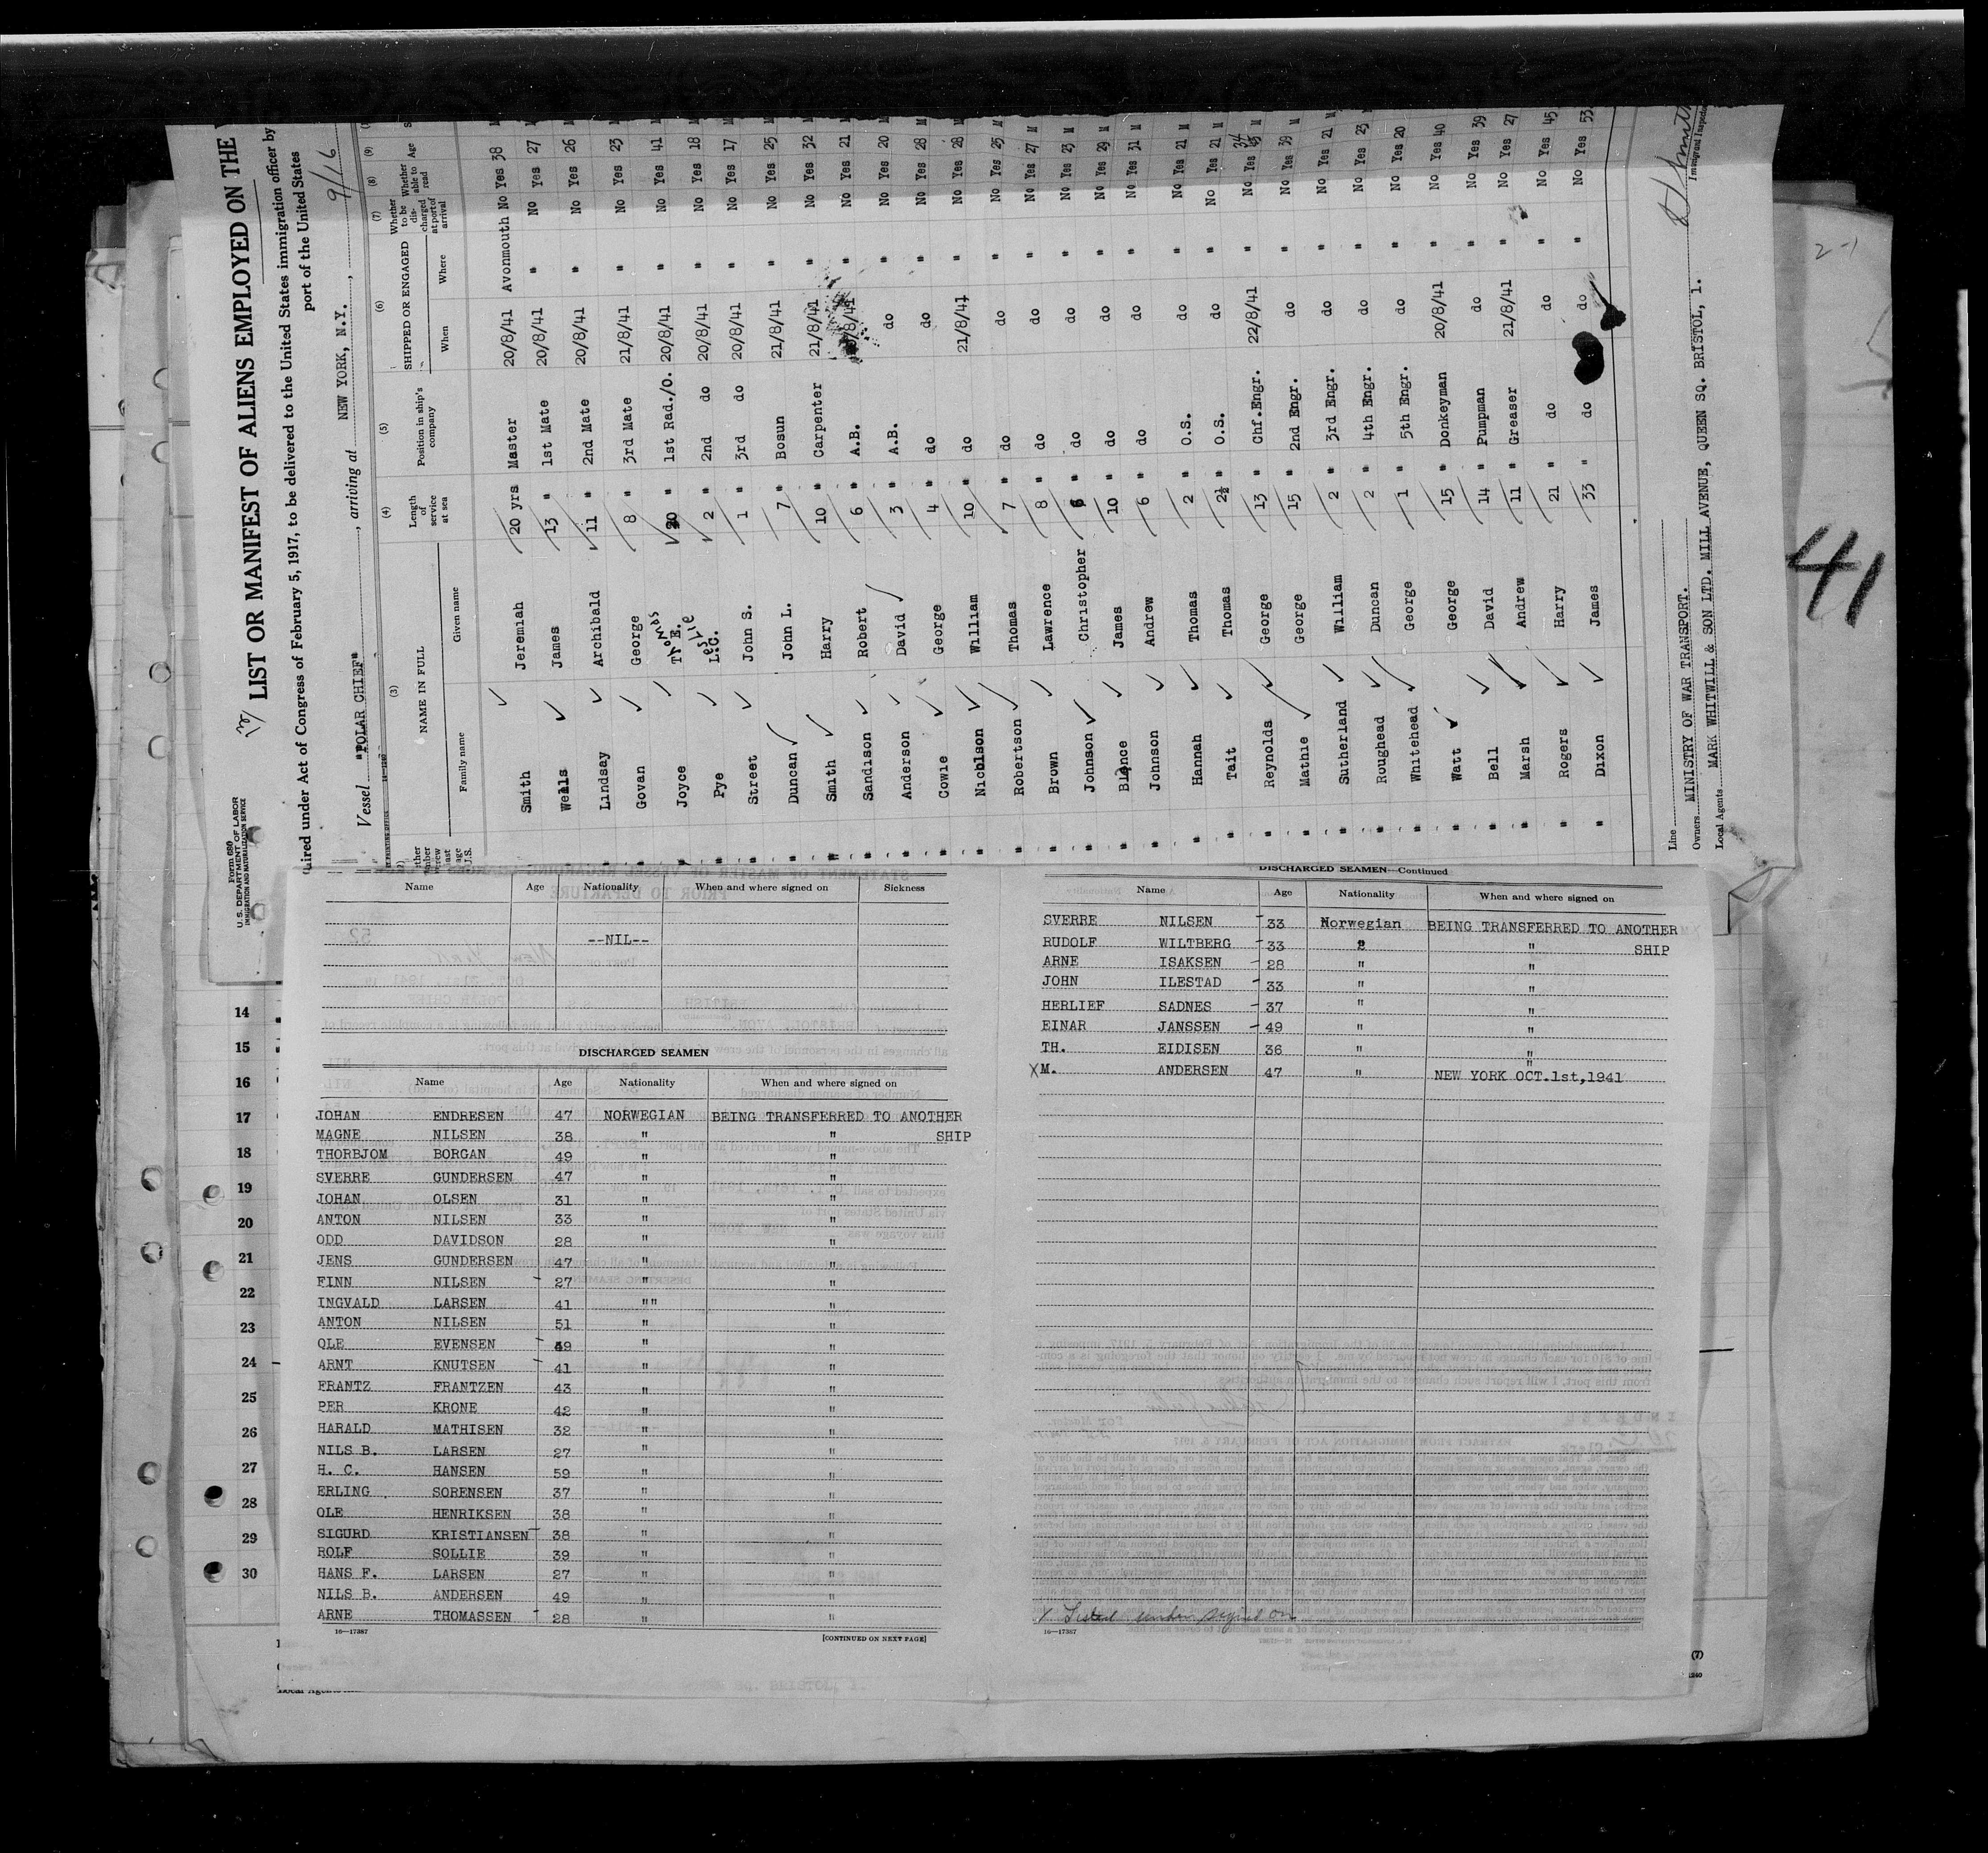 Form 680
U. S. DEPARTMENT OF LABOR
IMMIGRATION AND NATURALIZATION SERVICE
LIST OR MANIFEST OF ALIENS EMPLOYED ON THE
uired under Act of Congress of February 5, 1917, to be delivered to the United States immigration officer by
port of the United States
Vessel "POLAR CHIEF", arriving at NEW YORK, N.Y., 9/16
(3) (4) (5) (6) (7) (8) (9)
NAME IN FULL Length of service at sea Position in ship's company SHIPPED OR ENGAGED Whether to be discharged at port of arrival Whether able to read Age
Family name Given name When Where
Smith Jeremiah 20 yrs Master 20/8/41 Avonmouth No Yes 38
Wells James 13 " 1st Mate 20/8/41 " No Yes 27
Lindsay Archibald 11 " 2nd Mate 20/8/41 " No Yes 26
Govan George 8 " 3rd Mate 21/8/41 " No Yes 23
Joyce Thomas E. 20 " 1st Rad./O. 20/8/41 " No Yes 41
Pye L.C. eslie 2 " 2nd do 20/8/41 " No Yes 18
Street John S. 1 " 3rd do 20/8/41 " No Yes 17
Duncan John L. 7 " Bosun 21/8/41 " No Yes 25
Smith Harry 10 " Carpenter 21/8/41 " No Yes 32
Sandison Robert 6 " A.B. /8/41 " No Yes 21
Anderson David 3 " A.B. do " No Yes 20
Cowie George 4 " do do " No Yes 28
Nicolson William 10 " do 21/8/41 " No Yes 28
Robertson Thomas 7 " do do " No Yes 25
Brown Lawrence 8 " do do " No Yes 27
Johnson Christopher 6 " do do " No Yes 23
Blance James 10 " do do " No Yes 29
Johnson Andrew 6 " do do " No Yes 31
Hannah Thomas 2 " O.S. do " No Yes 21
Tait Thomas 2½ " O.S. do " No Yes 21
Reynolds George 13 " Chf.Engr. 22/8/41 " No Yes 34
Mathie George 15 " 2nd Engr. do " No Yes 39
Sutherland William 2 " 3rd Engr. do " No Yes 21
Roughead Duncan 2 " 4th Engr. do " No Yes 23
Whitehead George 1 " 5th Engr. do " No Yes 20
Watt George 15 " Donkeyman 20/8/41 " No Yes 40
Bell David 14 " Pumpman do " No Yes 39
Marsh Andrew 11 " Greaser 21/8/41 " No Yes 27
Rogers Harry 21 " do do " No Yes 45
Dixon James 33 " do do " No Yes 53
Line
Owners MINISTRY OF WAR TRANSPORT.
Local Agents MARK WHITWILL & SON LTD. MILL AVENUE, QUEEN SQ. BRISTOL, 1.
Immigrant Inspector
41
2-1
14
15
16
17
18
19
20
21
22
23
24
25
26
27
28
29
30
Name Age Nationality When and where signed on Sickness
--NIL--
DISCHARGED SEAMEN
Name Age Nationality When and where signed on
JOHAN ENDRESEN 47 NORWEGIAN BEING TRANSFERRED TO ANOTHER
MAGNE NILSEN 38 " " SHIP
THORBJOM BORGAN 49 " "
SVERRE GUNDERSEN 47 " "
JOHAN OLSEN 31 " "
ANTON NILSEN 33 " "
ODD DAVIDSON 28 " "
JENS GUNDERSEN 47 " "
FINN NILSEN 27 " "
INGVALD LARSEN 41 "" "
ANTON NILSEN 51 " "
OLE EVENSEN 49 " "
ARNT KNUTSEN 41 " "
FRANTZ FRANTZEN 43 " "
PER KRONE 42 " "
HARALD MATHISEN 32 " "
NILS B. LARSEN 27 " "
H. C. HANSEN 59 " "
ERLING SORENSEN 37 " "
OLE HENRIKSEN 38 " "
SIGURD KRISTIANSEN 38 " "
ROLF SOLLIE 39 " "
HANS F. LARSEN 27 " "
NILS B. ANDERSEN 49 " "
ARNE THOMASSEN 28 " "
16—17387 [CONTINUED ON NEXT PAGE]
DISCHARGED SEAMEN—Continued
Name Age Nationality When and where signed on
SVERRE NILSEN 33 Norwegian BEING TRANSFERRED TO ANOTHER
RUDOLF WILTBERG 33 " " SHIP
ARNE ISAKSEN 28 " "
JOHN ILESTAD 33 " "
HERLIEF SADNES 37 " "
EINAR JANSSEN 49 " "
TH. EIDISEN 36 " "
X M. ANDERSEN 47 " " NEW YORK OCT.1st,1941
X Listed under signed on
16—17387
(7)
1240
Local Agents